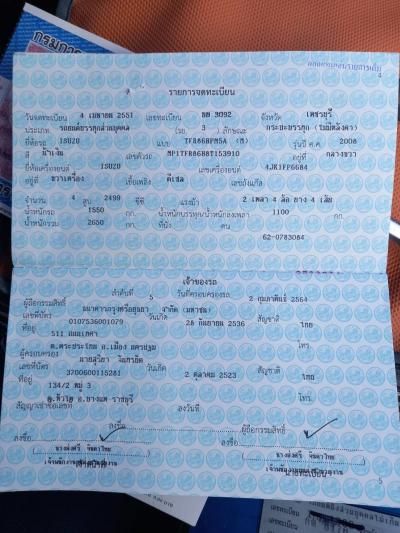 กรมการ
4
รายการจดทะเบียน
วันจดทะเบียน 4 เมษายน 2551 เลขทะเบียน บพ 3092 จังหวัด เพชรบุรี
ประเภท รถยนต์บรรทุกส่วนบุคคล (รย. 3) ลักษณะ กระบะบรรทุก (ไม่มีหลังคา)
ยี่ห้อรถ ISUZU แบบ TFR86HPM5A (M) รุ่นปี ค.ศ. 2008
สี น้ำเงิน เลขตัวรถ MP1TFR86H8T153910 อยู่ที่ กลางขวา
ยี่ห้อเครื่องยนต์ ISUZU เลขเครื่องยนต์ 4JK1FP6684
อยู่ที่ ขวาเครื่อง เชื้อเพลิง ดีเซล เลขถังแก๊ส
จำนวน 4 สูบ 2499 ซีซี แรงม้า 2 เพลา 4 ล้อ ยาง 4 เส้น
น้ำหนักรถ 1550 กก. น้ำหนักบรรทุก/น้ำหนักลงเพลา 1100 กก.
น้ำหนักรวม 2650 กก. ที่นั่ง คน
62-0783084
เจ้าของรถ
ลำดับที่ 5 วันที่ครอบครองรถ 2 กุมภาพันธ์ 2564
ผู้ถือกรรมสิทธิ์ ธนาคารกรุงศรีอยุธยา จำกัด (มหาชน)
เลขที่บัตร 0107536001079 วันเกิด 28 กันยายน 2536 สัญชาติ ไทย
ที่อยู่ 511 โทร.
ต.พระประโทน อ.เมือง นครปฐม
ผู้ครอบครอง นายสุริยา
เลขที่บัตร 3700600115281 วันเกิด 2 ตุลาคม 2523 สัญชาติ ไทย
ที่อยู่ 134/2 หมู่ 3 โทร.
อ.บางแพ ราชบุรี
สัญญาเช่าซื้อเลขที่ ลงวันที่
ลงชื่อ ผู้ถือกรรมสิทธิ์
ลงชื่อ ลงชื่อ
นายทะเบียน
5